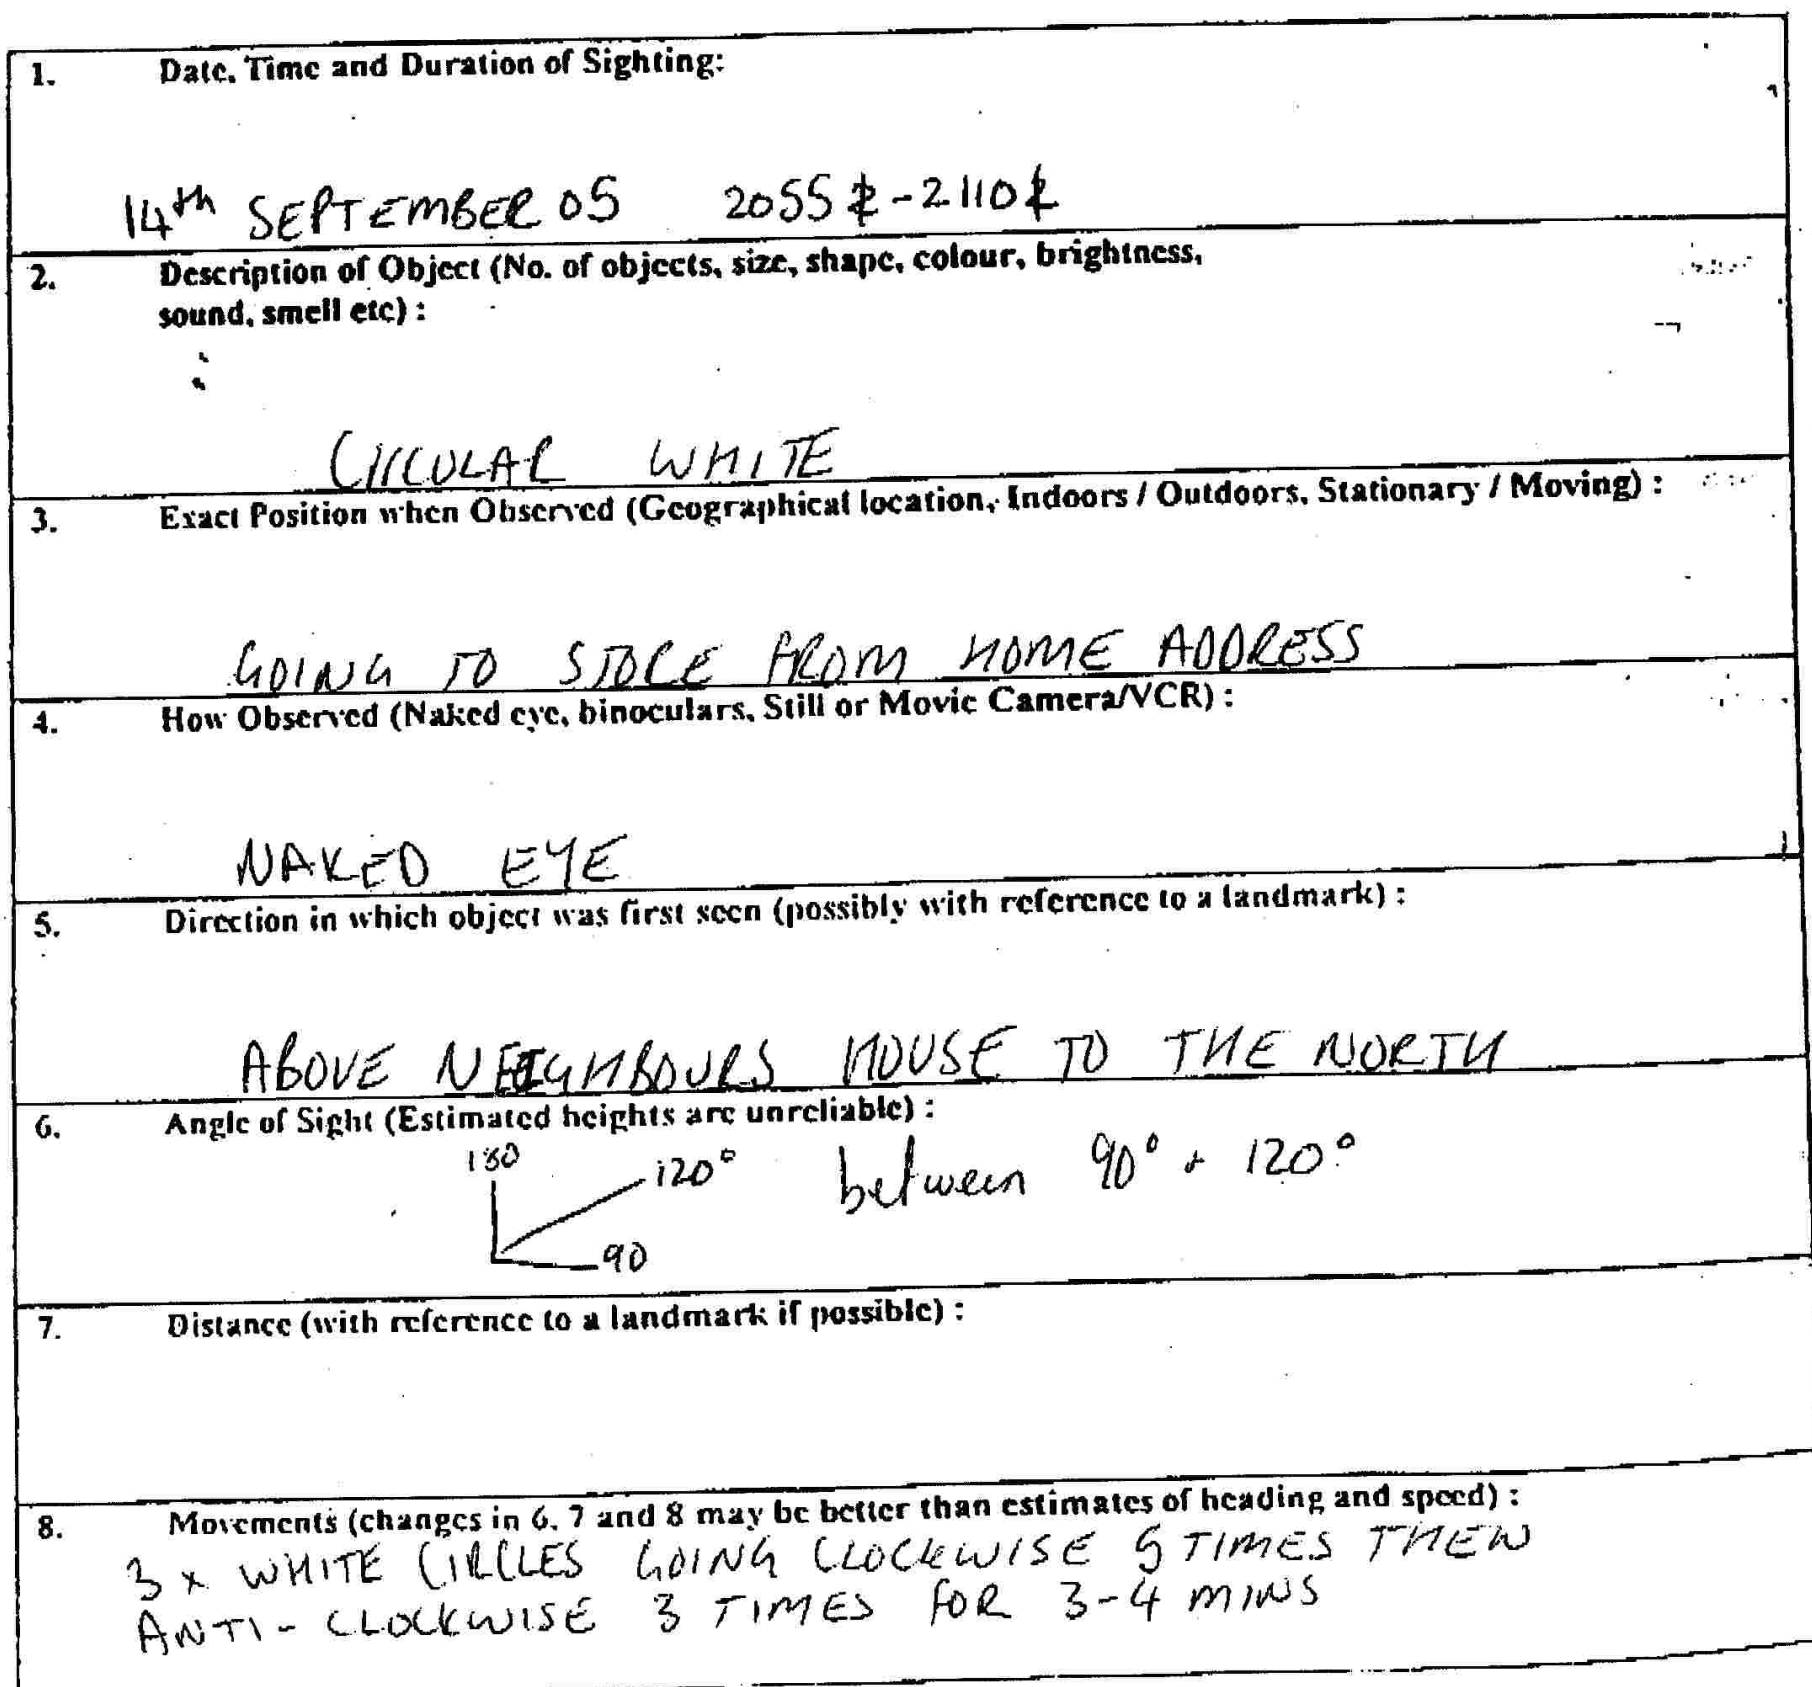 1. Date, Time and Duration of Sighting:
14th SEPTEMBER 05 2055 Z - 2110 Z
2. Description of Object (No. of objects, size, shape, colour, brightness,
sound, smell etc) :
CIRCULAR WHITE
3. Exact Position when Observed (Geographical location, Indoors / Outdoors, Stationary / Moving) :
GOING TO STORE FROM HOME ADDRESS
4. How Observed (Naked eye, binoculars, Still or Movie Camera/VCR) :
NAKED EYE
5. Direction in which object was first seen (possibly with reference to a landmark) :
ABOVE NEIGHBOURS HOUSE TO THE NORTH
6. Angle of Sight (Estimated heights are unreliable) :
180
120° between 90° + 120°
90
7. Distance (with reference to a landmark if possible) :
8. Movements (changes in 6, 7 and 8 may be better than estimates of heading and speed) :
3 x WHITE CIRCLES GOING CLOCKWISE 5 TIMES THEN
ANTI-CLOCKWISE 3 TIMES FOR 3-4 MINS